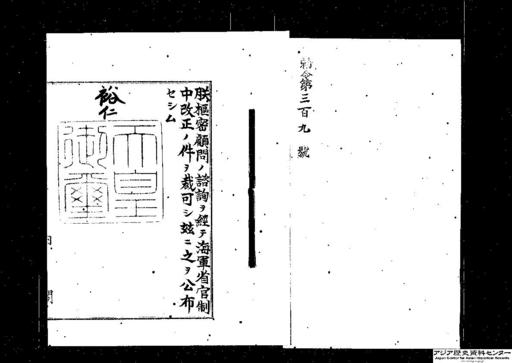 勅令第三百九號
朕樞密顧問ノ諮詢ヲ經テ海軍省官制
中改正ノ件ヲ裁可シ玆ニ之ヲ公布
セシム
裕仁
天皇
御璽
アジア歴史資料センター
Japan Center for Asian Historical Records